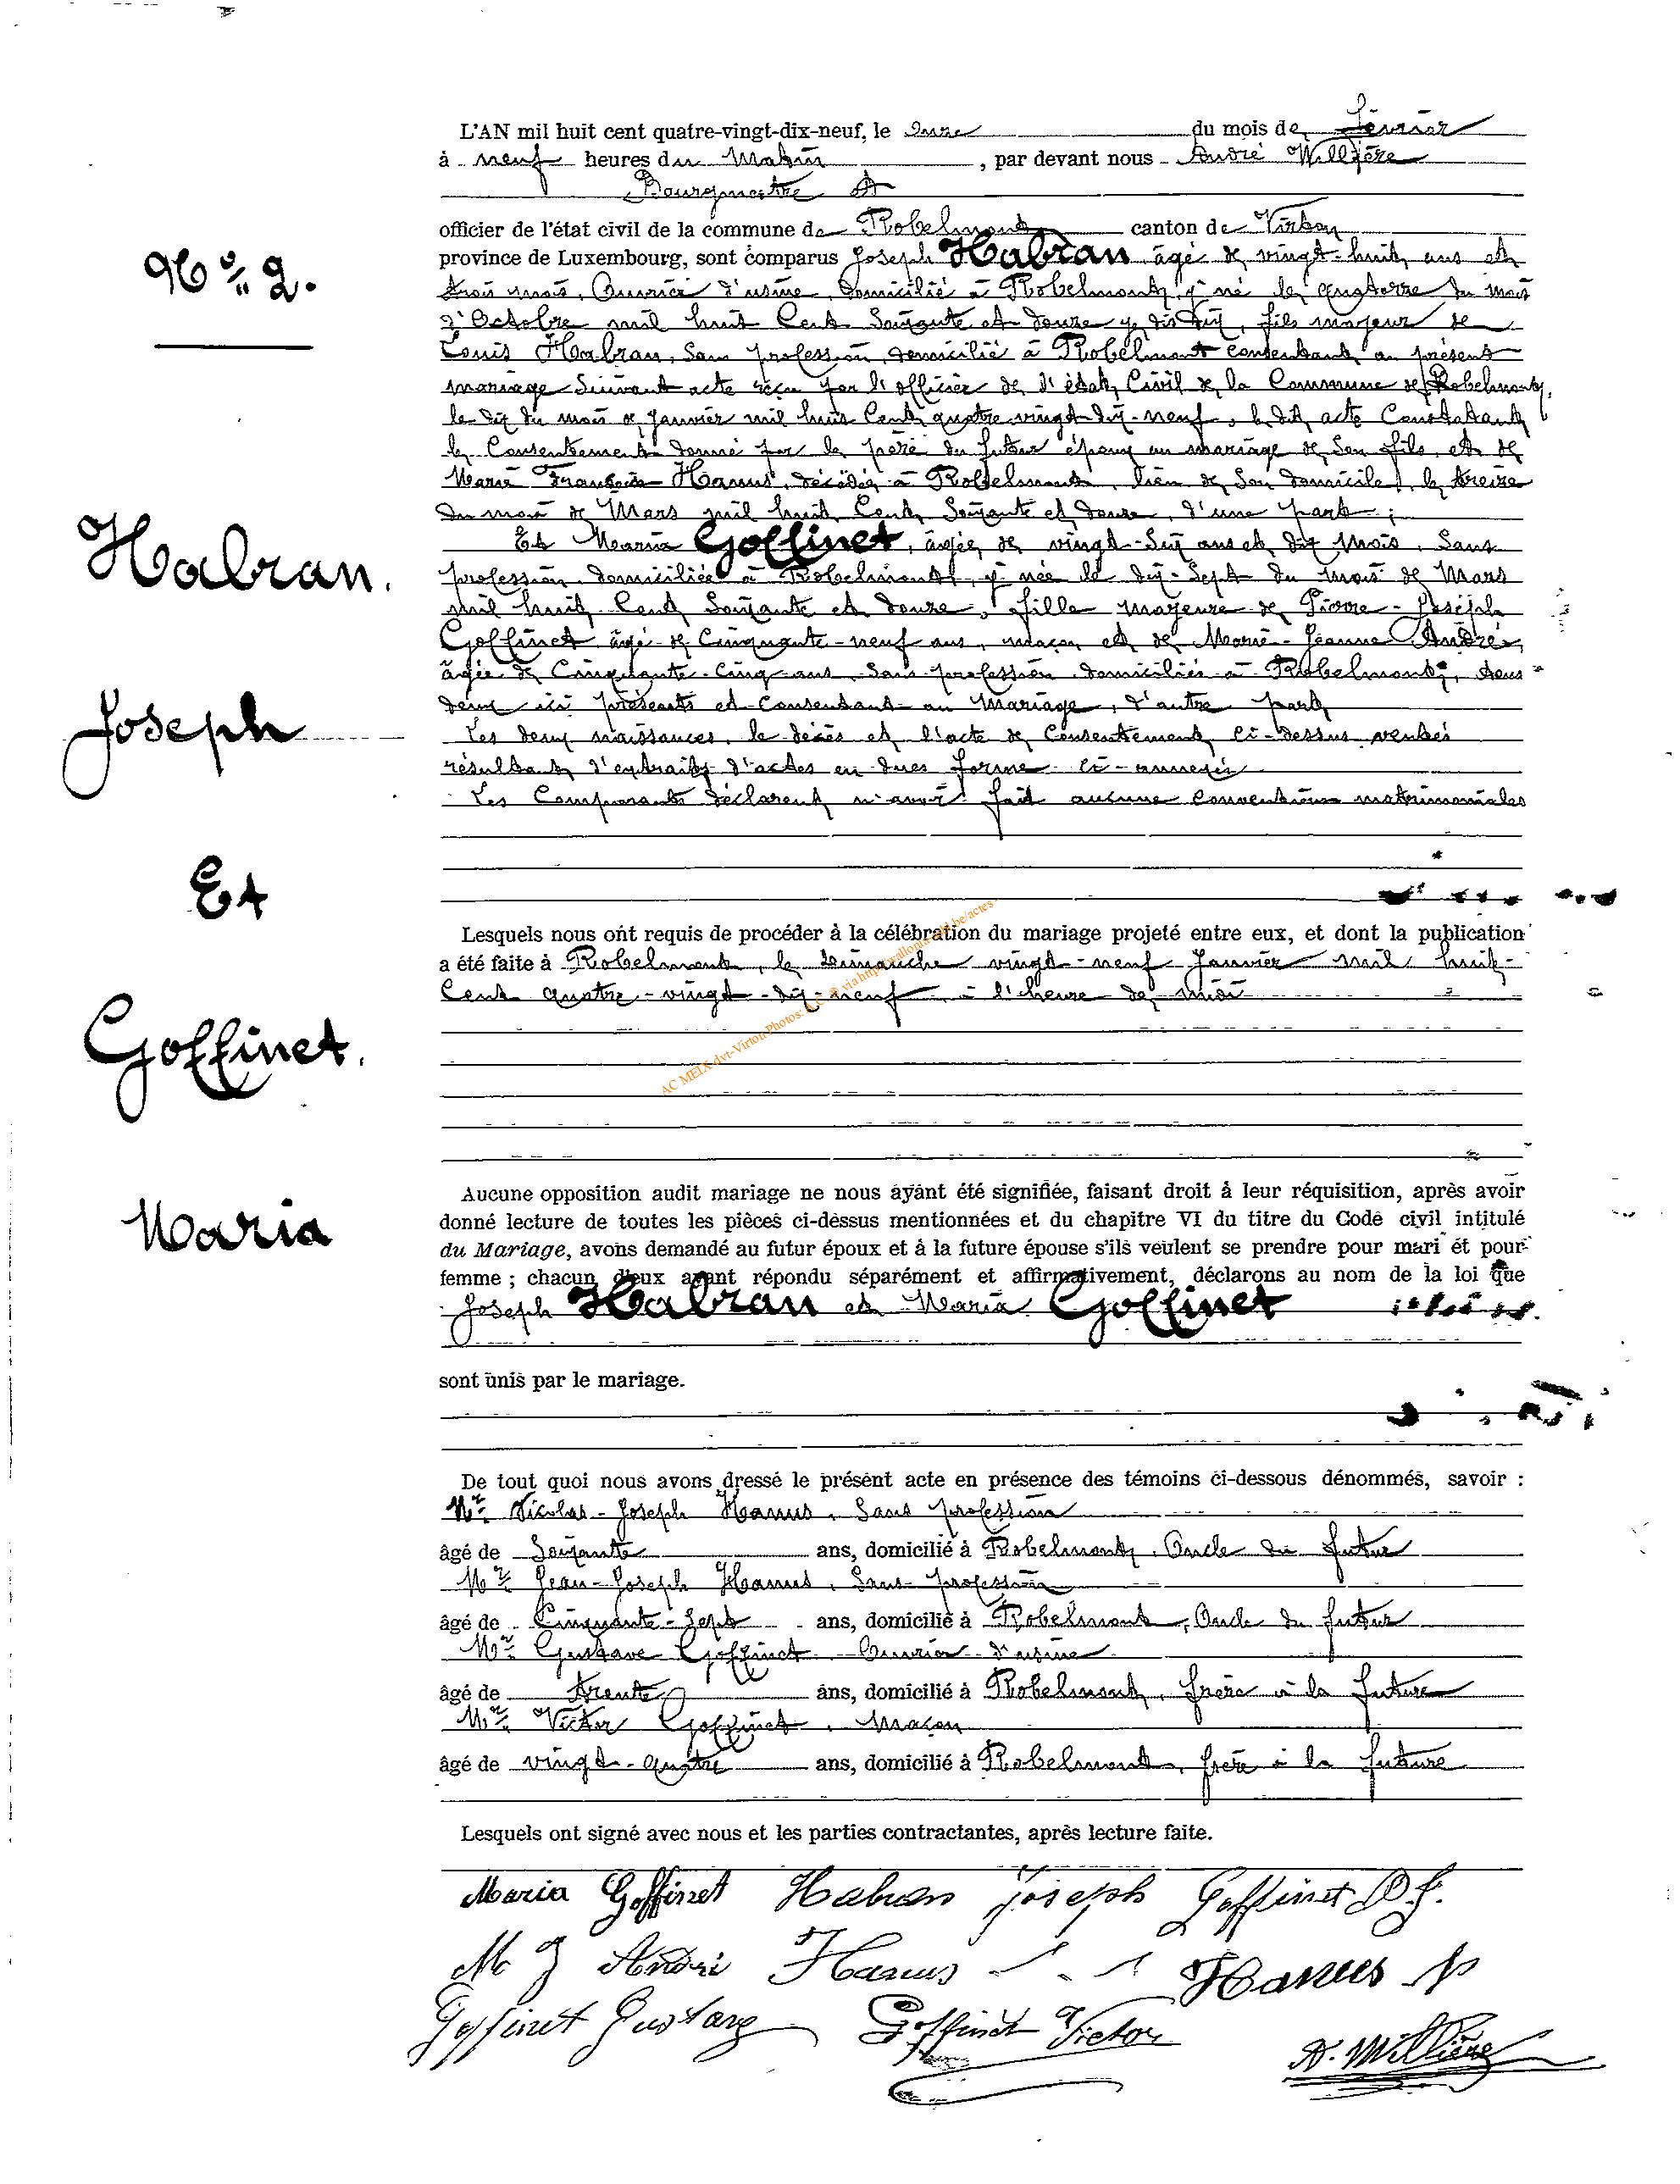 L'AN mil huit cent quatre-vingt-dix-neuf, le onze du mois de Février
à neuf heures du Matin, par devant nous André Willière
Bourgmestre
officier de l'état civil de la commune de Robelmont canton de Virton
N° 2.
province de Luxembourg, sont comparus Joseph Habran âgé de vingt-huit ans et
trois mois, Ouvrier d'usine, domicilié à Robelmont, y né le quatorze du mois
d'Octobre mil huit Cent Soixante et dix, fils majeur de
Louis Habran, Sans profession, domicilié à Robelmont consentant au présent
mariage Suivant acte reçu par l'officier de l'état Civil de la Commune de Robelmont,
le dix du mois de Janvier mil huit Cent quatre-vingt-dix-neuf, le dit acte Constatant
le Consentement donné par le père du futur époux au mariage de Son fils, et de
Marie Hanus, décédée à Robelmont, lieu de Son domicile, le treize
du mois de Mars mil huit Cent Soixante et douze, d'une part ;
Habran.
Et Maria Goffinet, âgée de vingt-Six ans et dix mois, Sans
profession, domiciliée à Robelmont, y née le dix-Sept du mois de Mars
mil huit Cent Soixante et douze, fille majeure de Pierre-Joseph
Goffinet âgé de Cinquante-neuf ans, maçon et de Marie-Jeanne André,
âgée de Cinquante-Cinq ans, Sans profession, domiciliés à Robelmont, tous
deux ici présents et Consentant au Mariage, d'autre part
Joseph
Les deux naissances, le décès et l'acte de Consentement Ci-dessus
résultent d'extraits d'actes en dues forme Ci-annexés
Les Comparants déclarent n'avoir fait aucune conventions matrimoniales
Et
Lesquels nous ont requis de procéder à la célébration du mariage projeté entre eux, et dont la publication
a été faite à Robelmont, le dimanche vingt-neuf Janvier mil huit-
Cent quatre-vingt-dix-neuf, à l'heure de midi
Goffinet.
Aucune opposition audit mariage ne nous ayant été signifiée, faisant droit à leur réquisition, après avoir
donné lecture de toutes les pièces ci-dessus mentionnées et du chapitre VI du titre du Code civil intitulé
Maria
du Mariage, avons demandé au futur époux et à la future épouse s'ils veulent se prendre pour mari et pour
femme ; chacun d'eux ayant répondu séparément et affirmativement, déclarons au nom de la loi que
Joseph Habran et Maria Goffinet
sont unis par le mariage.
De tout quoi nous avons dressé le présent acte en présence des témoins ci-dessous dénommés, savoir :
Mr Nicolas-Joseph Hanus, Sans profession
âgé de Soixante ans, domicilié à Robelmont, Oncle du futur
Mr Jean-Joseph Hanus, Sans profession
âgé de Cinquante-Sept ans, domicilié à Robelmont, Oncle du futur
Mr Gustave Goffinet Ouvrier d'usine
âgé de trente ans, domicilié à Robelmont, frère à la future
Mr Victor Goffinet, Maçon
âgé de vingt-quatre ans, domicilié à Robelmont, frère à la future
Lesquels ont signé avec nous et les parties contractantes, après lecture faite.
Maria Goffinet Habran Joseph Goffinet P J.
M J André Hanus Hanus
Goffinet Gustave Goffinet Victor A. Willière